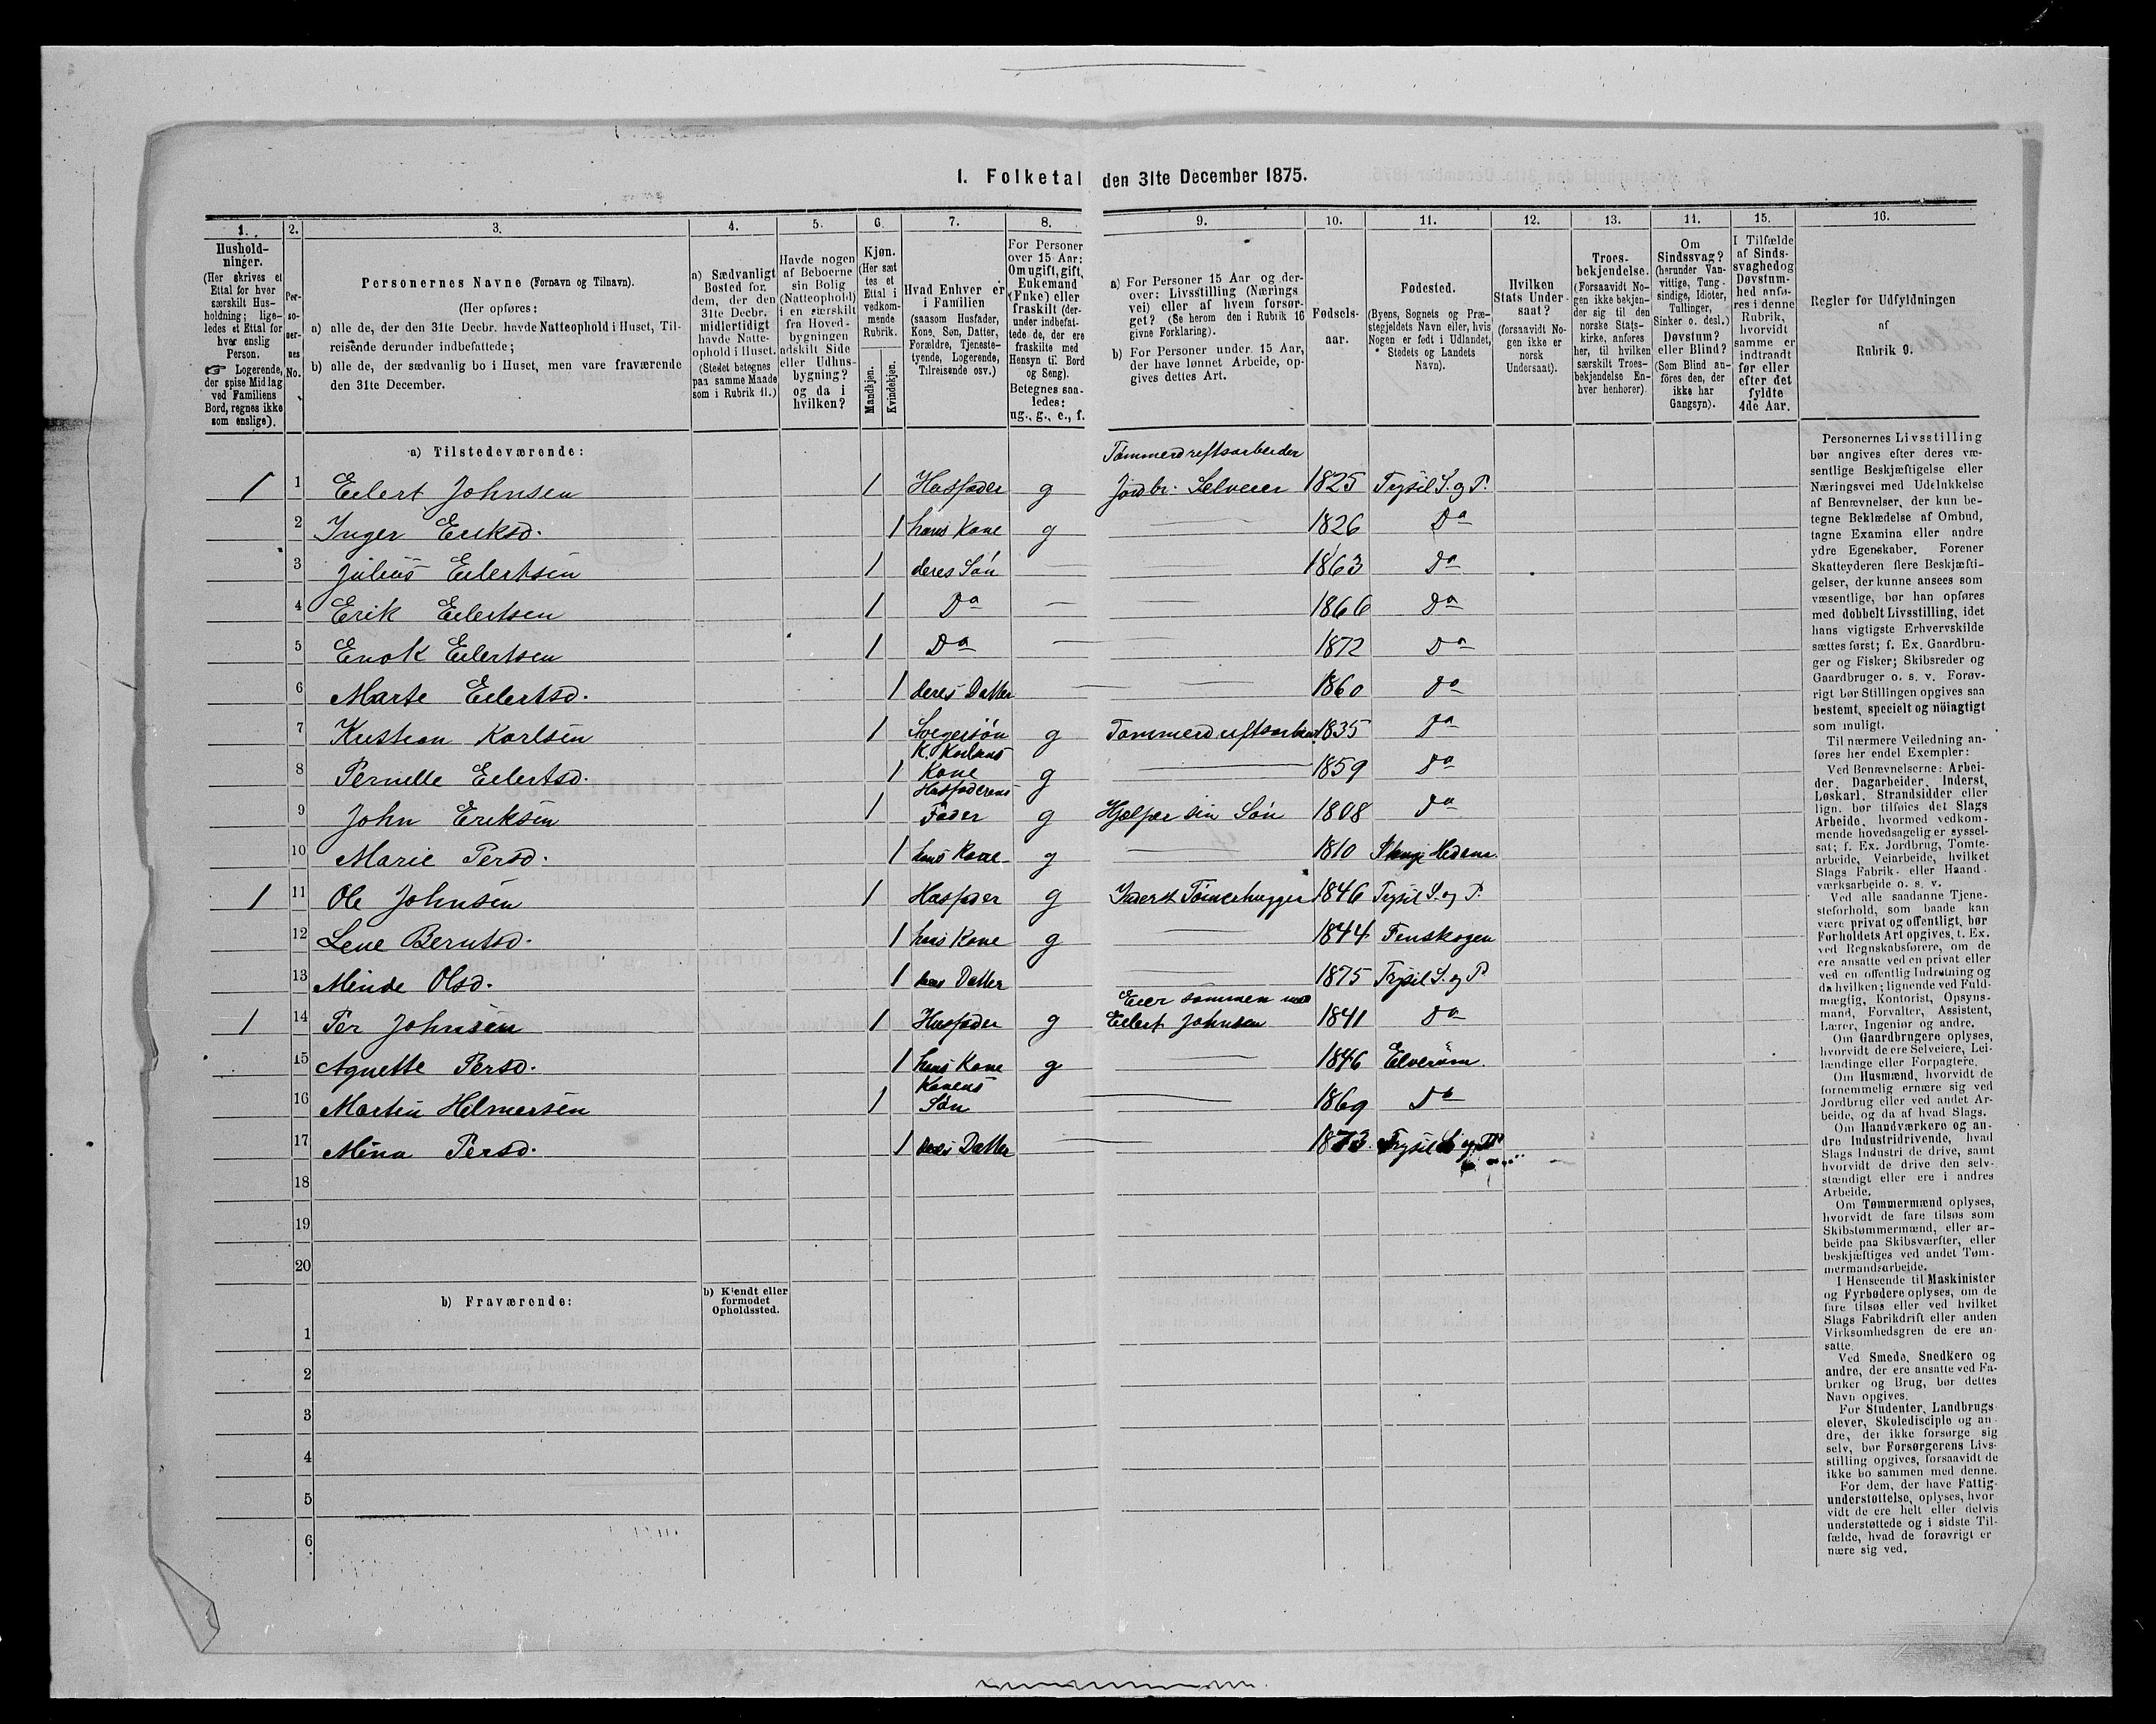 I. Folketal den 31te December 1875.
1. 2. 3. 4. 5. 6. 7. 8. 9. 10. 11. 12. 13. 14. 15. 16.
Hushold-
ninger.
(Her skrives et
Ettal for hver
særskilt Hus-
holdning; lige-
ledes et Ettal for
hver enslig
Person.
☞ Logerende,
der spise Middag
ved Familiens
Bord, regnes ikke
som enslige).
Per-
so-
ner-
nes
No.
Personernes Navne (Fornavn og Tilnavn).
(Her opføres:
a) alle de, der den 31te Decbr. havde Natteophold i Huset, Til-
reisende derunder indbefattede;
b) alle de, der sædvanlig bo i Huset, men vare fraværende
den 31te December.
a) Sædvanligt
Bosted for
dem, der den
31te Decbr.
midlertidigt
havde Natte-
ophold i Huset.
(Stedet betegnes
paa samme Maade
som i Rubrik 11.)
Havde nogen
af Beboerne
sin Bolig
(Natteophold)
i en særskilt
fra Hoved-
bygningen
adskilt Side
eller Udhus-
bygning?
og da i
hvilken?
Kjøn.
(Her sæt
tes et
Ettal i
vedkom-
mende
Rubrik.
Mandkjøn.
Kvindekjøn.
Hvad Enhver er
i Familien
(saasom Husfader,
Kone, Søn, Datter,
Forældre, Tjeneste-
tyende, Logerende,
Tilreisende osv.)
For Personer
over 15 Aar:
Om ugift, gift,
Enkemand
(Enke) eller
fraskilt (der-
under indbefat-
tede de, der ere
fraskilte med
Hensyn til Bord
og Seng).
Betegnes saa-
ledes:
ug., g., e., f.
a) For Personer 15 Aar og der-
over: Livsstilling (Nærings
vei) eller af hvem forsør-
get? (Se herom den i Rubrik 16
givne Forklaring).
b) For Personer under 15 Aar,
der have lønnet Arbeide, op-
gives dettes Art.
Fødsels-
aar.
Fødested.
(Byens, Sognets og Præ-
stegjeldets Navn eller, hvis
Nogen er født i Udlandet,
Stedets og Landets
Navn).
Hvilken
Stats Under-
saat?
(forsaavidt No-
gen ikke er
norsk
Undersaat).
Troes-
bekjendelse.
(Forsaavidt No-
gen ikke bekjen-
der sig til den
norske Stats-
kirke, anføres
her, til hvilken
særskilt Troes-
bekjendelse En-
hver henhører).
Om
Sindssvag?
(herunder Van-
vittige, Tung-
sindige, Idioter,
Tullinger,
Sinker o. desl.)
Døvstum?
eller Blind?
(Som Blind an-
føres den, der
ikke har
Gangsyn).
I Tilfælde
af Sinds-
svaghed og
Døvstum-
hed anfø-
res i denne
Rubrik,
hvorvidt
samme er
indtraadt
før eller
efter det
fyldte
4de Aar.
Regler for Udfyldningen
af
Rubrik 9.
a) Tilstedeværende:
Tømmerdreftsarbeider
1 1 Eilert Johnsen 1 Husfader g Jordbr. Selveier 1825 Trysil S. og P.
2 Inger Eriksd. 1 hans Kone g 1826 Do
3 Julius Eilertsen 1 deres Søn 1863 Do
4 Erik Eilertsen 1 Do 1866 Do
5 Enok Eilertsen 1 Do 1872 Do
6 Marte Eilertsd. 1 deres Datter 1860 do
7 Kristian Karlsen 1 Svegersøn g Tømmerdriftsarbeid 1835 Do
K. Karlsens
8 Pernille Eilertsd. 1 Kone g 1859 Do
Husfaderens
9 John Eriksen 1 Fader g Hjelper sin Søn 1808 Do
10 Marie Persd. 1 hans Kone g 1810 Stange Hedem.
1 11 Ole Johnsen 1 Husfader g Inderst Tømerhugger 1846 Trysil S. og P.
12 Lene Berntsd. 1 hans Kone g 1844 Finskogen
13 Minde Olsd. 1 deres Datter 1875 Trysil S. og P.
Eier sammen med
1 14 Per Johnsen 1 Husfader g Eilert Johnsen 1841 Do
15 Agnette Persd. 1 hans Kone g 1846 Elverum.
Konens
16 Martin Helmersen 1 Søn 1869 Do
17 Mina Persd. 1 deres Datter 1873. Trysil S. og P.
18
19
20
b) Fraværende:
b) Kjendt eller
formodet
Opholdssted.
1
2
3
4
5
6
Personernes Livsstilling
bør angives efter deres væ-
sentlige Beskjæftigelse eller
Næringsvei med Udelukkelse
af Benævnelser, der kun be-
tegne Beklædelse af Ombud,
tagne Examina eller andre
ydre Egenskaber. Forener
Skatteyderen flere Beskjæfti-
gelser, der kunne ansees som
væsentlige, bør han opføres
med dobbelt Livsstilling, idet
hans vigtigste Erhvervskilde
sættes først; f. Ex. Gaardbru-
ger og Fisker; Skibsreder og
Gaardbruger o. s. v. Forøv-
rigt bør Stillingen opgives saa
bestemt, specielt og nöiagtigt
som muligt.
Til nærmere Veiledning an-
føres her endel Exempler:
Ved Benævnelserne: Arbei-
der, Dagarbeider, Inderst,
Løskarl, Strandsidder eller
lign. bør tilføies det Slags
Arbeide, hvormed vedkom-
mende hovedsagelig er syssel-
sat; f. Ex. Jordbrug, Tomte-
arbeide, Veiarbeide, hvilket
Slags Fabrik- eller Haand-
værksarbeide o. s. v.
Ved alle saadanne Tjene-
steforhold, som baade kan
være privat og offentligt, bør
Forholdets Art opgives, t. Ex.
ved Regnskabsførere, om de
ere ansatte ved en privat eller
ved en offentlig Indretning og
da hvilken; lignende ved Fuld-
mægtig, Kontorist, Opsyns-
mand, Forvalter, Assistent,
Lærer, Ingeniør og andre.
Om Gaardbrugere oplyses,
hvorvidt de ere Selveiere, Lei-
lændinge eller Forpagtere.
Om Husmænd, hvorvidt de
fornemmelig ernære sig ved
Jordbrug eller ved andet Ar-
beide, og da af hvad Slags.
Om Haandværkere og an-
dre Industridrivende, hvad
Slags Industri de drive, samt
hvorvidt de drive den selv-
stændigt eller ere i andres
Arbeide.
Om Tømmermænd oplyses,
hvorvidt de fare tilsøs som
Skibstømmermænd, eller ar-
beide paa Skibsværfter, eller
beskjæftiges ved andet Tøm-
mermandsarbeide.
I Henseende til Maskinister
og Fyrbødere oplyses, om de
fare tilsøs eller ved hvilket
Slags Fabrikdrift eller anden
Virksomhedsgren de ere an-
satte.
Ved Smede, Snedkere og
andre, der ere ansatte ved Fa-
briker og Brug, bør dettes
Navn opgives.
For Studenter, Landbrugs-
elever, Skoledisciple og an-
dre, der ikke forsørge sig
selv, bør Forsørgerens Livs-
stilling opgives, forsaavidt de
ikke bo sammen med denne.
For dem, der have Fattig-
understøttelse, oplyses, hvor
vidt de ere helt eller delvis
understøttede og i sidste Til-
fælde, hvad de forøvrigt er
nære sig ved.